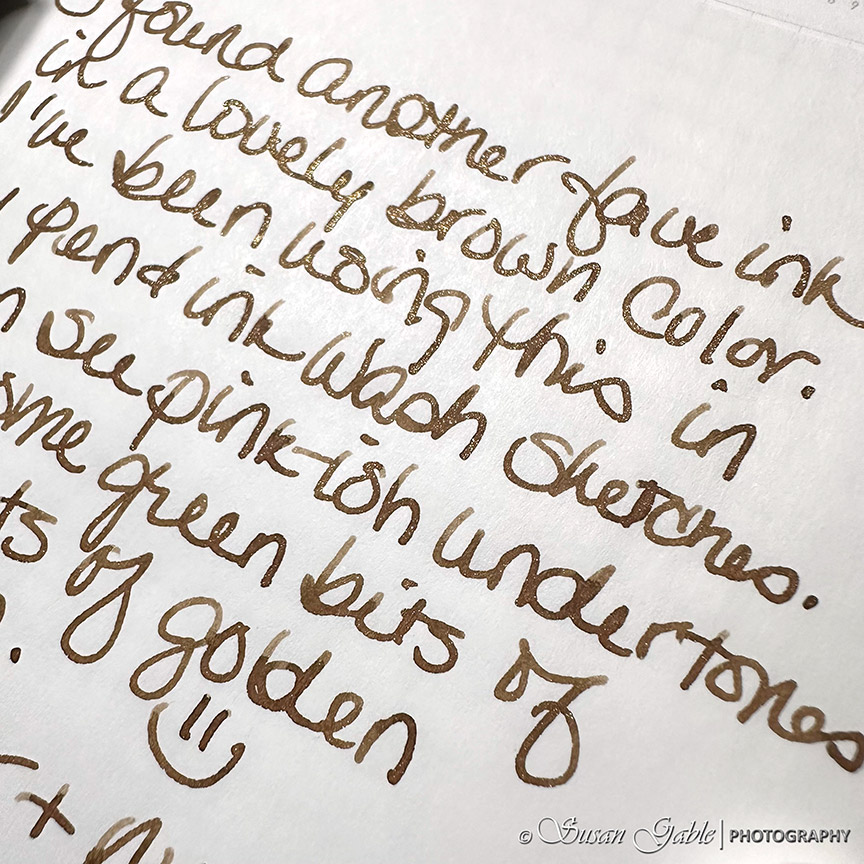 found another fave ink
in a lovely brown color.
I've been using this in
pend ink wash sketches.
see pink-ish undertones
green bits of
of golden
+
© Susan Gable | PHOTOGRAPHY